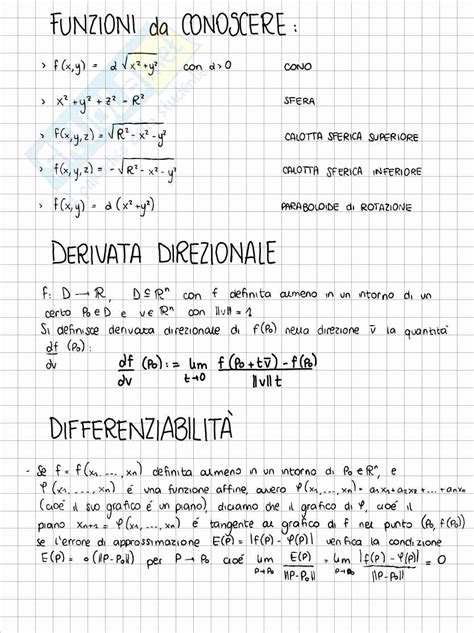 FUNZIONI da CONOSCERE :
> f(x,y) = a √x²+y² con a>0 CONO
> x² + y² + z² - R² SFERA
> f(x,y,z) = √R² - x² - y² CALOTTA SFERICA SUPERIORE
> f(x,y,z) = - √R² - x² - y² CALOTTA SFERICA INFERIORE
> f(x,y) = a (x²+y²) PARABOLOIDE di ROTAZIONE
DERIVATA DIREZIONALE
f: D → ℝ, D ⊆ ℝⁿ con f definita almeno in un intorno di un
certo P₀ ∈ D e v ∈ ℝⁿ con ||v|| = 1
Si definisce derivata direzionale di f(P₀) nella direzione v̄ la quantità
df/dv (P₀) :
df/dv (P₀) := lim t→0 f(P₀ + tv̄) - f(P₀) / ||v|| t
DIFFERENZIABILITÀ
- Se f = f(x₁, ..., xₙ) definita almeno in un intorno di P₀ ∈ ℝⁿ, e
φ(x₁, ..., xₙ) é una funzione affine, ovvero φ(x₁, ..., xₙ) = a₁x₁ + a₂x₂ + ... + aₙxₙ
(cioé il suo grafico é un piano), diciamo che il grafico di φ, cioé il
piano xₙ₊₁ = φ(x₁, ..., xₙ) é tangente al grafico di f nel punto (P₀, f(P₀))
se l'errore di approssimazione E(P) = |f(P) - φ(P)| verifica la condizione
E(P) = o(||P-P₀||) per P → P₀ cioé lim P→P₀ E(P) / ||P-P₀|| = lim P→P₀ |f(P) - φ(P)| / ||P-P₀|| = 0